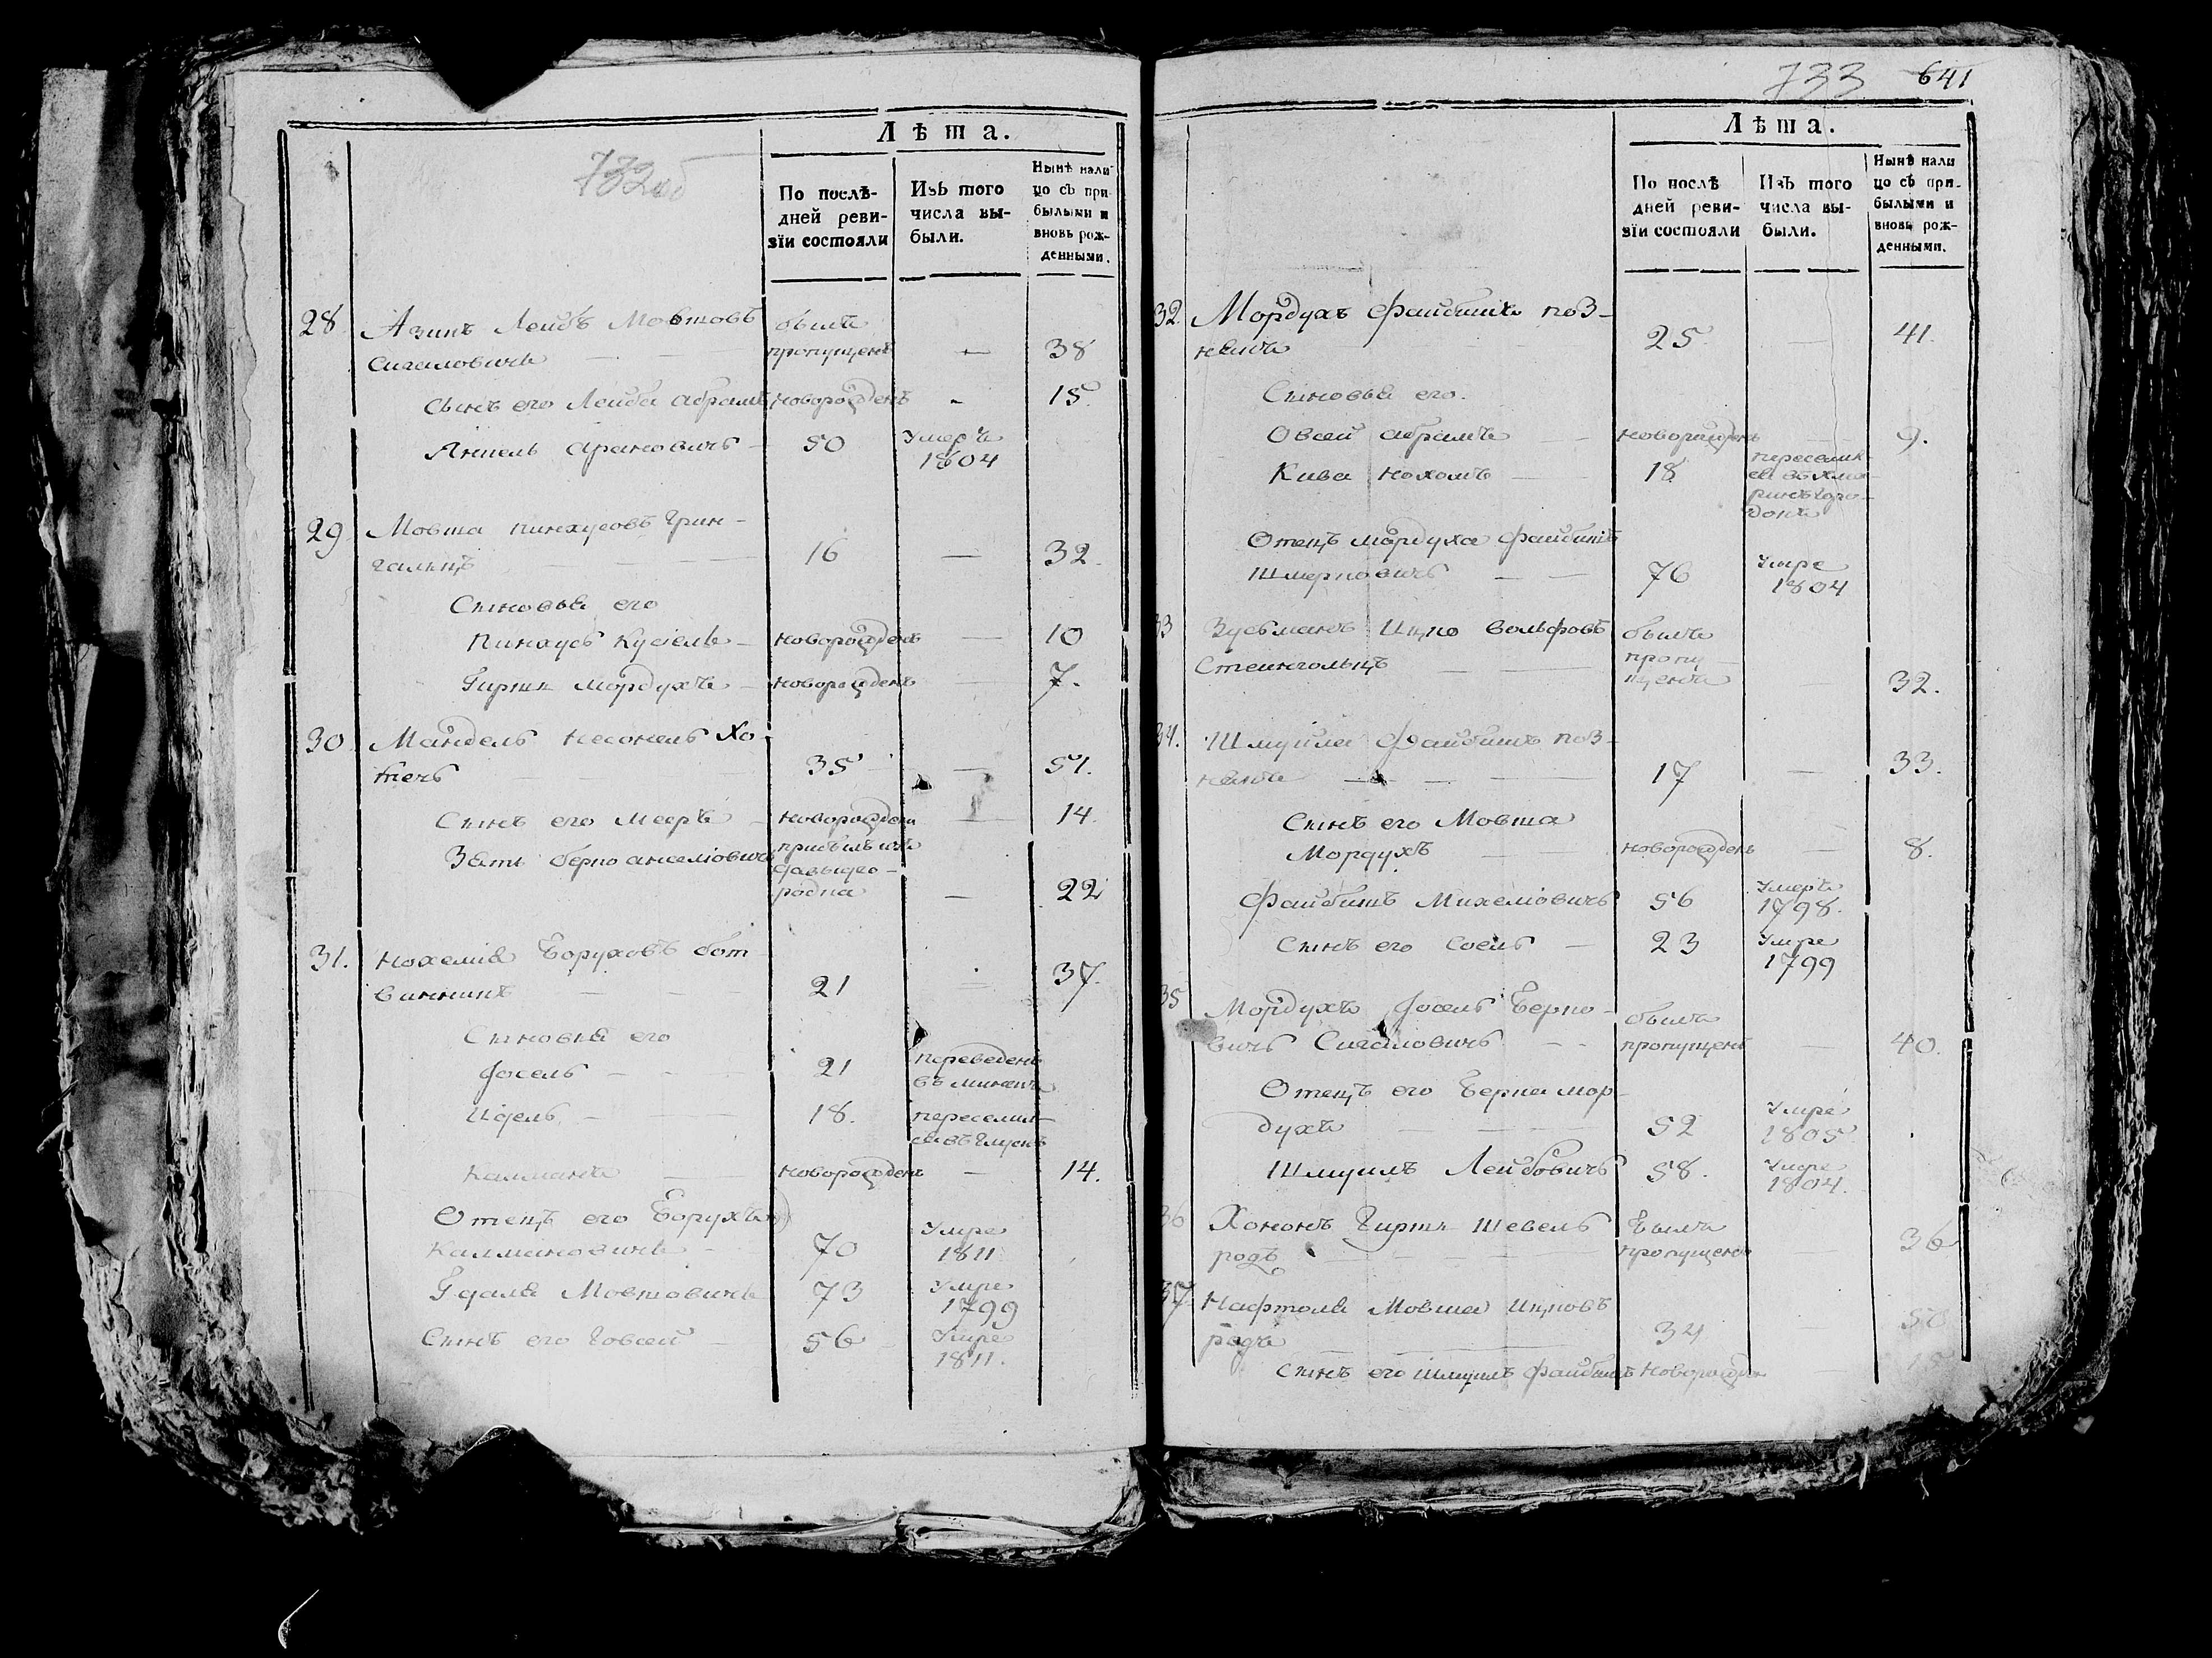 732об
Лѣта.
По послѣ-
дней реви-
зіи состояли
Изъ того
числа вы-
были.
Нынѣ нали
цо съ при
былыми и
вновь рож-
денными.
28 Лейбъ Мовшовъ былъ
пропущенъ — 38
сынъ его Лейба абрамъ новорожденъ - 15
Янкель ароновичъ - 50 Умеръ
1804
29 Мовша пинхусовъ Грин-
гольцъ 16 — 32.
Сыновья его
Пинхусъ Кусіель - новорожденъ — 10
Гиршъ Мордухъ - новорожденъ — 7.
30 Мандель Хо
тенъ 35 — 51.
Сынъ его Мееръ - новорожденъ — 14.
Зять берко анселіовичъ прибылъ изъ
давыдго-
родка — 22
31. Нохемія Боруховъ бот
винникъ 21 — 37.
Сыновья его
Іосель 21 переведенъ
въ минскъ
Идель 18. переселил-
ся въ глускъ
Калманъ новорожденъ — 14.
Отецъ его Борухъ
Калмановичъ 70 Умре
1811
Гдаля Мовшовичъ 73 Умре
1799
Сынъ его Говсей 56 Умре
1811.
733 641
Лѣта.
По послѣ
дней реви-
зіи состояли
Изъ того
числа вы-
были.
Нынѣ нали
цо съ при-
былыми и
вновь рож-
денными.
32. Мордухъ Файбишъ поз-
някъ 25. — 41.
Сыновья его.
Овсей абрамъ новорожденъ — 9.
Кива Нохомъ 18 переселил-
ся въ
Отецъ мордуха файбишъ
Шмерковичъ 76 Умре
1804
33 Зусьманъ Ицко вольфовъ былъ
Стеингольцъ пропу-
щенъ — 32.
34. Шмуйла Файбишъ поз-
някъ 17 — 33.
Сынъ его Мовша
Мордухъ новорожденъ — 8.
Файбишъ Михеліовичъ 56 Умеръ
1798.
Сынъ его Соель 23 Умре
1799
35 Мордухъ Іосель Берко-
вичъ Сигаловичъ былъ
пропущенъ — 40.
Отецъ его Берка мор-
духъ 52 Умре
1805
Шмуилъ Лейбовичъ 58. Умре
1804.
36 Хононъ Гиршъ Шевель былъ
родъ пропущенъ 36
37. Нафтоля Мовша Ицковъ
родъ 34 — 50
Сынъ его шмуилъ файбишъ новорожденъ